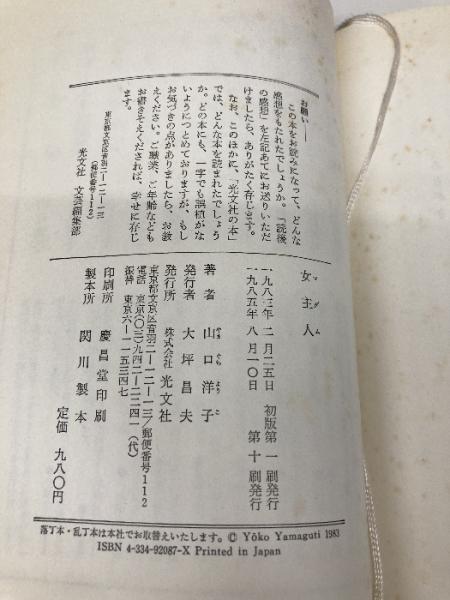 お願い
この本をお読みになって、どんな
感想をもたれたでしょうか。「読後
の感想」を左記あてにお送りいただ
けましたら、ありがたく存じます。
なお、このほかに、「光文社の本」
では、どんな本を読まれたでしょう
か。どの本にも、一字でも誤植がな
いようにつとめておりますが、もし
お気づきの点がありましたら、お教
えください。ご職業、ご年齢なども
お書きそえくだされば、幸せに存じ
ます。
東京都文京区音羽二―一二―一三
(郵便番号112)
光文社 文芸編集部
女主人
マダム
一九八三年 二月二五日 初版第一刷発行
一九八五年 八月一〇日 第十刷発行
著者 山口洋子
やま ぐち よう こ
発行者 大坪昌夫
発行所 株式会社 光文社
東京都文京区音羽二―一二―一三/郵便番号112
電話 東京(〇三)九四二―二二四一(代)
振替 東京六―一一五三四七
印刷所 慶昌堂印刷
製本所 関川製本
定価 九八〇円
落丁本・乱丁本は本社でお取替えいたします。 © Yôko Yamaguti 1983
ISBN 4-334-92087-X Printed in Japan